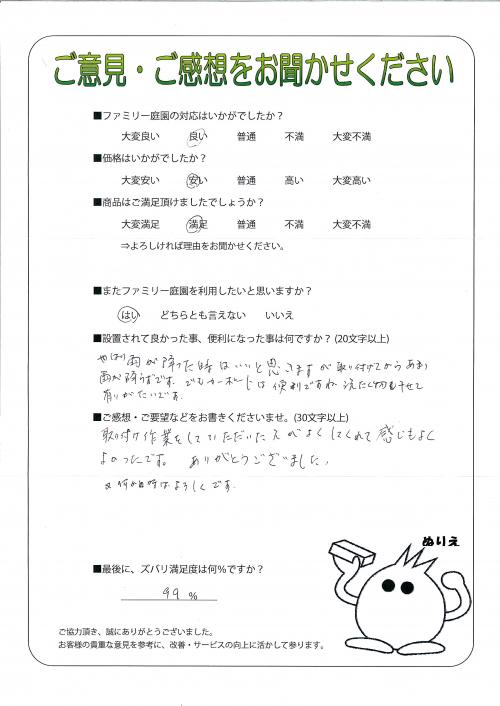 ご意見・ご感想をお聞かせください
■ファミリー庭園の対応はいかがでしたか？
大変良い 良い 普通 不満 大変不満
■価格はいかがでしたか？
大変安い 安い 普通 高い 大変高い
■商品はご満足頂けましたでしょうか？
大変満足 満足 普通 不満 大変不満
⇒よろしければ理由をお聞かせください。
■またファミリー庭園を利用したいと思いますか？
はい どちらとも言えない いいえ
■設置されて良かった事、便利になった事は何ですか？(20文字以上)
やはり雨が降った時はいいと思いますが取り付けてからあまり
雨が降らずです。でもカーポートは便利ですね
有りがたいです。
■ご感想・ご要望などをお書きくださいませ。(30文字以上)
取付け作業をしていただいた方がよくしてくれて感じもよく
よかったです。ありがとうございました。
又何か時はよろしくです。
ぬりえ
■最後に、ズバリ満足度は何％ですか？
99 %
ご協力頂き、誠にありがとうございました。
お客様の貴重な意見を参考に、改善・サービスの向上に活かして参ります。